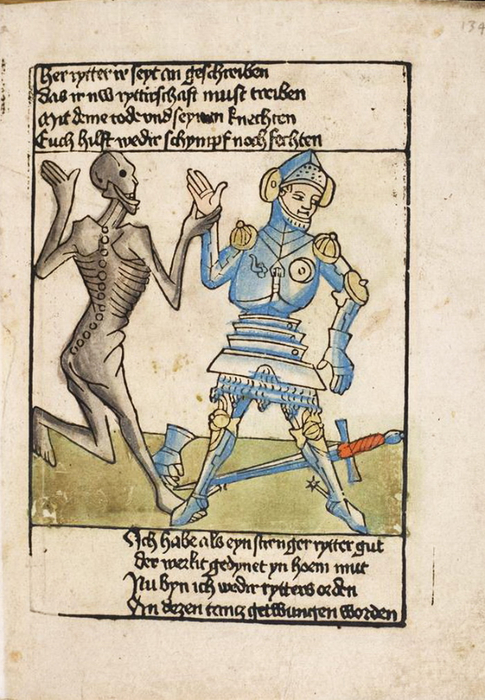 134
Her rytter ir seyt an geschreiben
das ir nw rytterschaft must treiben
Mit deme tode vnd seynen knechten
Euch hilft wedir schympf noch fechten
Ich habe als eyn strenger rytter gut
der werlit gedynet yn hoem mut
Nu byn ich wedir rytters orden
An dezen tancz getwungen worden